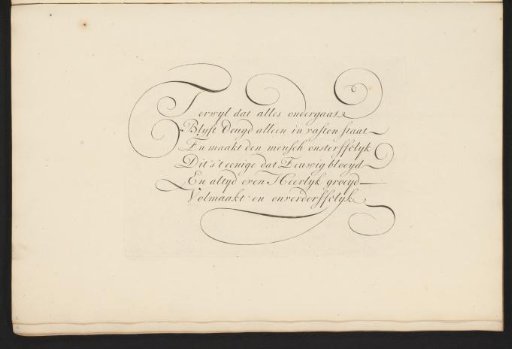 Terwyl dat alles ondergaat
Blyft Deugd alleen in vasten staat
En maakt den mensch onsterffelyk
Dit's 't eenige dat Eeuwig bloeyd
En altyd even Heerlyk groeyd
Volmaakt en onverderffelyk